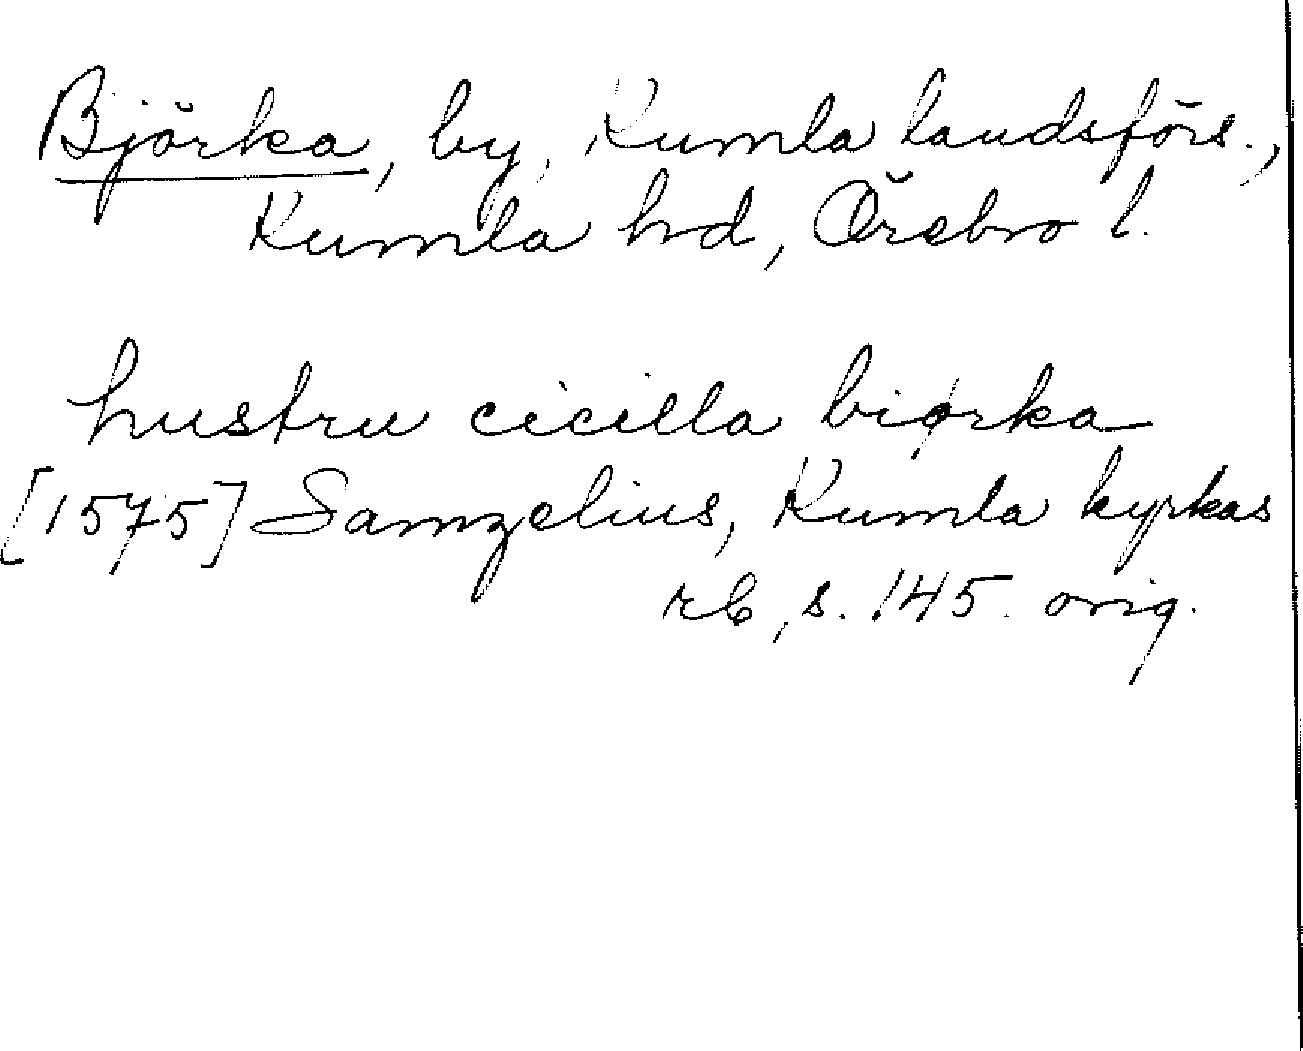 Björka, by, Kumla landsförs.,
Kumla hd, Örebro l.
hustru cicilla biørka
[1575] Samzelius, Kumla kyrkas
rb, s. 145. orig.